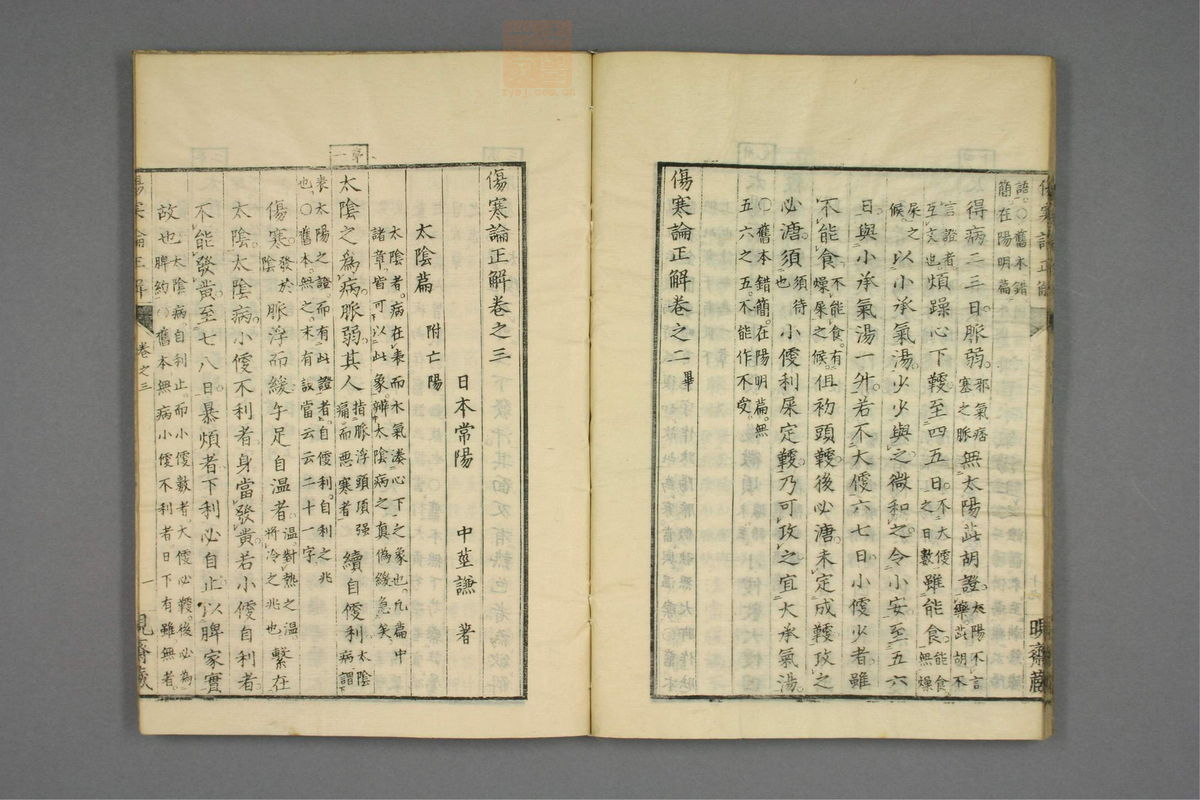 語。○舊本錯
簡在陽明篇
得病二三日。脈弱。邪氣痞塞之脈無太陽茈胡證。太陽不言藥。茈胡不
言證者。互文也煩躁心下鞕。至四五日。不大便之日數雖能食。能食。無燥
屎之候。以小承氣湯。少少與之。微和之。令小安。至五六
日。與小承氣湯一升。若不大便六七日。小便少者。雖
不能食。不能食。有燥屎之候。但初頭鞕。後必溏。未定成鞕。攻之
必溏。須須待也小便利。屎定鞕。乃可攻之。宜大承氣湯。
○舊本錯簡。在陽明篇。無
五六之五。不能作不受。
傷寒論正解卷之二 畢
傷寒論正解卷之三
日本常陽 中莖謙 著
太陰篇 附亡陽
太陰者。病在表而水氣湊心下之象也。凡篇中
諸章。皆可以此象。辨太陰病之真偽緩急矣。
太陰之為病。脈弱。其人指脈浮頭項強痛而惡寒者續自便利。太陰病。謂下
表太陽之證而有此證者。自便利。自利之兆
也。○舊本。無之。末有設當云云二十一字。
傷寒。發於陰脈浮而緩。手足自溫者。溫。對熱之溫。將冷之兆也繫在
太陰。太陰病。小便不利者。身當發黃。若小便自利者。
不能發黃。至七八日。暴煩者。下利必自止。以脾家實
故也。太陰病自利止。而小便數者。大便必鞕。後必為脾約○舊本無病小便不利者日下有雖無者。
卷之三
一